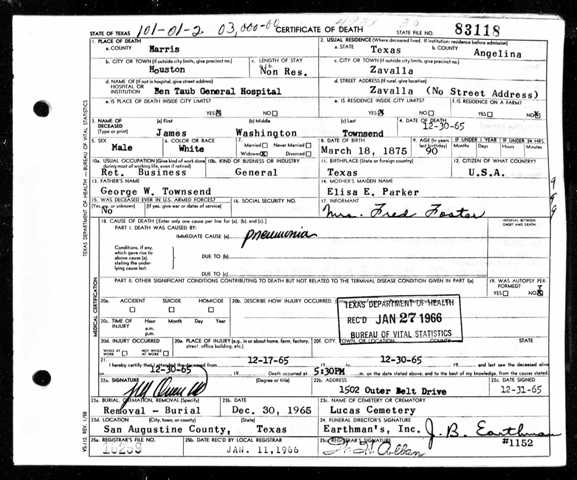 101-01-2 03,000-00
STATE OF TEXAS CERTIFICATE OF DEATH STATE FILE NO. 83118
1. PLACE OF DEATH 2. USUAL RESIDENCE (Where deceased lived. If institution: residence before admission)
a. COUNTY Harris a. STATE Texas b. COUNTY Angelina
b. CITY OR TOWN (If outside city limits, give precinct no.) c. LENGTH OF STAY c. CITY OR TOWN (If outside city limits, give precinct no.)
Houston Non Res. Zavalla
d. NAME OF (If not in hospital, give street address) HOSPITAL OR INSTITUTION Ben Taub General Hospital d. STREET ADDRESS (If rural, give location) Zavalla (No Street Address)
e. IS PLACE OF DEATH INSIDE CITY LIMITS? YES NO e. IS RESIDENCE INSIDE CITY LIMITS? YES NO f. IS RESIDENCE ON A FARM? YES NO
3. NAME OF DECEASED (Type or print) (a) First (b) Middle (c) Last 4. DATE OF DEATH
James Washington Townsend 12-30-65
5. SEX 6. COLOR OR RACE 7. Married Never Married Widowed Divorced 8. DATE OF BIRTH 9. AGE (In years last birthday) IF UNDER 1 YEAR IF UNDER 24 HRS.
Male White March 18, 1875 90 Months Days Hours Min.
10a. USUAL OCCUPATION (Give kind of work done during most of working life, even if retired) 10b. KIND OF BUSINESS OR INDUSTRY 11. BIRTHPLACE (State or foreign country) 12. CITIZEN OF WHAT COUNTRY?
Ret. Business General Texas U.S.A.
13. FATHER'S NAME 14. MOTHER'S MAIDEN NAME
George W. Townsend Elisa E. Parker
15. WAS DECEASED EVER IN U.S. ARMED FORCES? 16. SOCIAL SECURITY NO. 17. INFORMANT
(Yes, no, or unknown) (If yes, give war or dates of service)
No Mrs. Fred Foster
18. CAUSE OF DEATH (Enter only one cause per line for (a), (b), and (c).) INTERVAL BETWEEN ONSET AND DEATH
PART I. DEATH WAS CAUSED BY:
IMMEDIATE CAUSE (a) pneumonia
Conditions, if any, which gave rise to above cause (a), stating the underlying cause last.
DUE TO (b)
DUE TO (c)
PART II. OTHER SIGNIFICANT CONDITIONS CONTRIBUTING TO DEATH BUT NOT RELATED TO THE TERMINAL DISEASE CONDITION GIVEN IN PART I(a) 19. WAS AUTOPSY PERFORMED? YES NO
20a. ACCIDENT SUICIDE HOMICIDE 20b. DESCRIBE HOW INJURY OCCURRED.
TEXAS DEPARTMENT OF HEALTH
REC'D JAN 27 1966
BUREAU OF VITAL STATISTICS
20c. TIME OF INJURY Hour Month Day Year
a.m.
p.m.
20d. INJURY OCCURRED 20e. PLACE OF INJURY (e.g., in or about home, farm, factory, street, office building, etc.) 20f. CITY, TOWN, OR LOCATION COUNTY STATE
WHILE AT WORK NOT WHILE AT WORK
21. I hereby certify that I attended the deceased from 12-17-65 to 12-30-65 and last saw the deceased alive
12-30-65 Death occurred at 5:30PM on the date stated above, and to the best of my knowledge, from the causes stated
22a. SIGNATURE (Degree or title) 22b. ADDRESS 22c. DATE SIGNED
1502 Outer Belt Drive 12-31-65
23a. BURIAL, CREMATION, REMOVAL (Specify) 23b. DATE 23c. NAME OF CEMETERY OR CREMATORY
Removal - Burial Dec. 30, 1965 Lucas Cemetery
23d. LOCATION (City, town, or county) (State) 24. FUNERAL DIRECTOR'S SIGNATURE
San Augustine County, Texas Earthman's, Inc. J.B. Earthman
#1152
25a. REGISTRAR'S FILE NO. 25b. DATE REC'D BY LOCAL REGISTRAR 25c. REGISTRAR'S SIGNATURE
JAN. 11, 1966
TEXAS DEPARTMENT OF HEALTH — BUREAU OF VITAL STATISTICS
MEDICAL CERTIFICATION